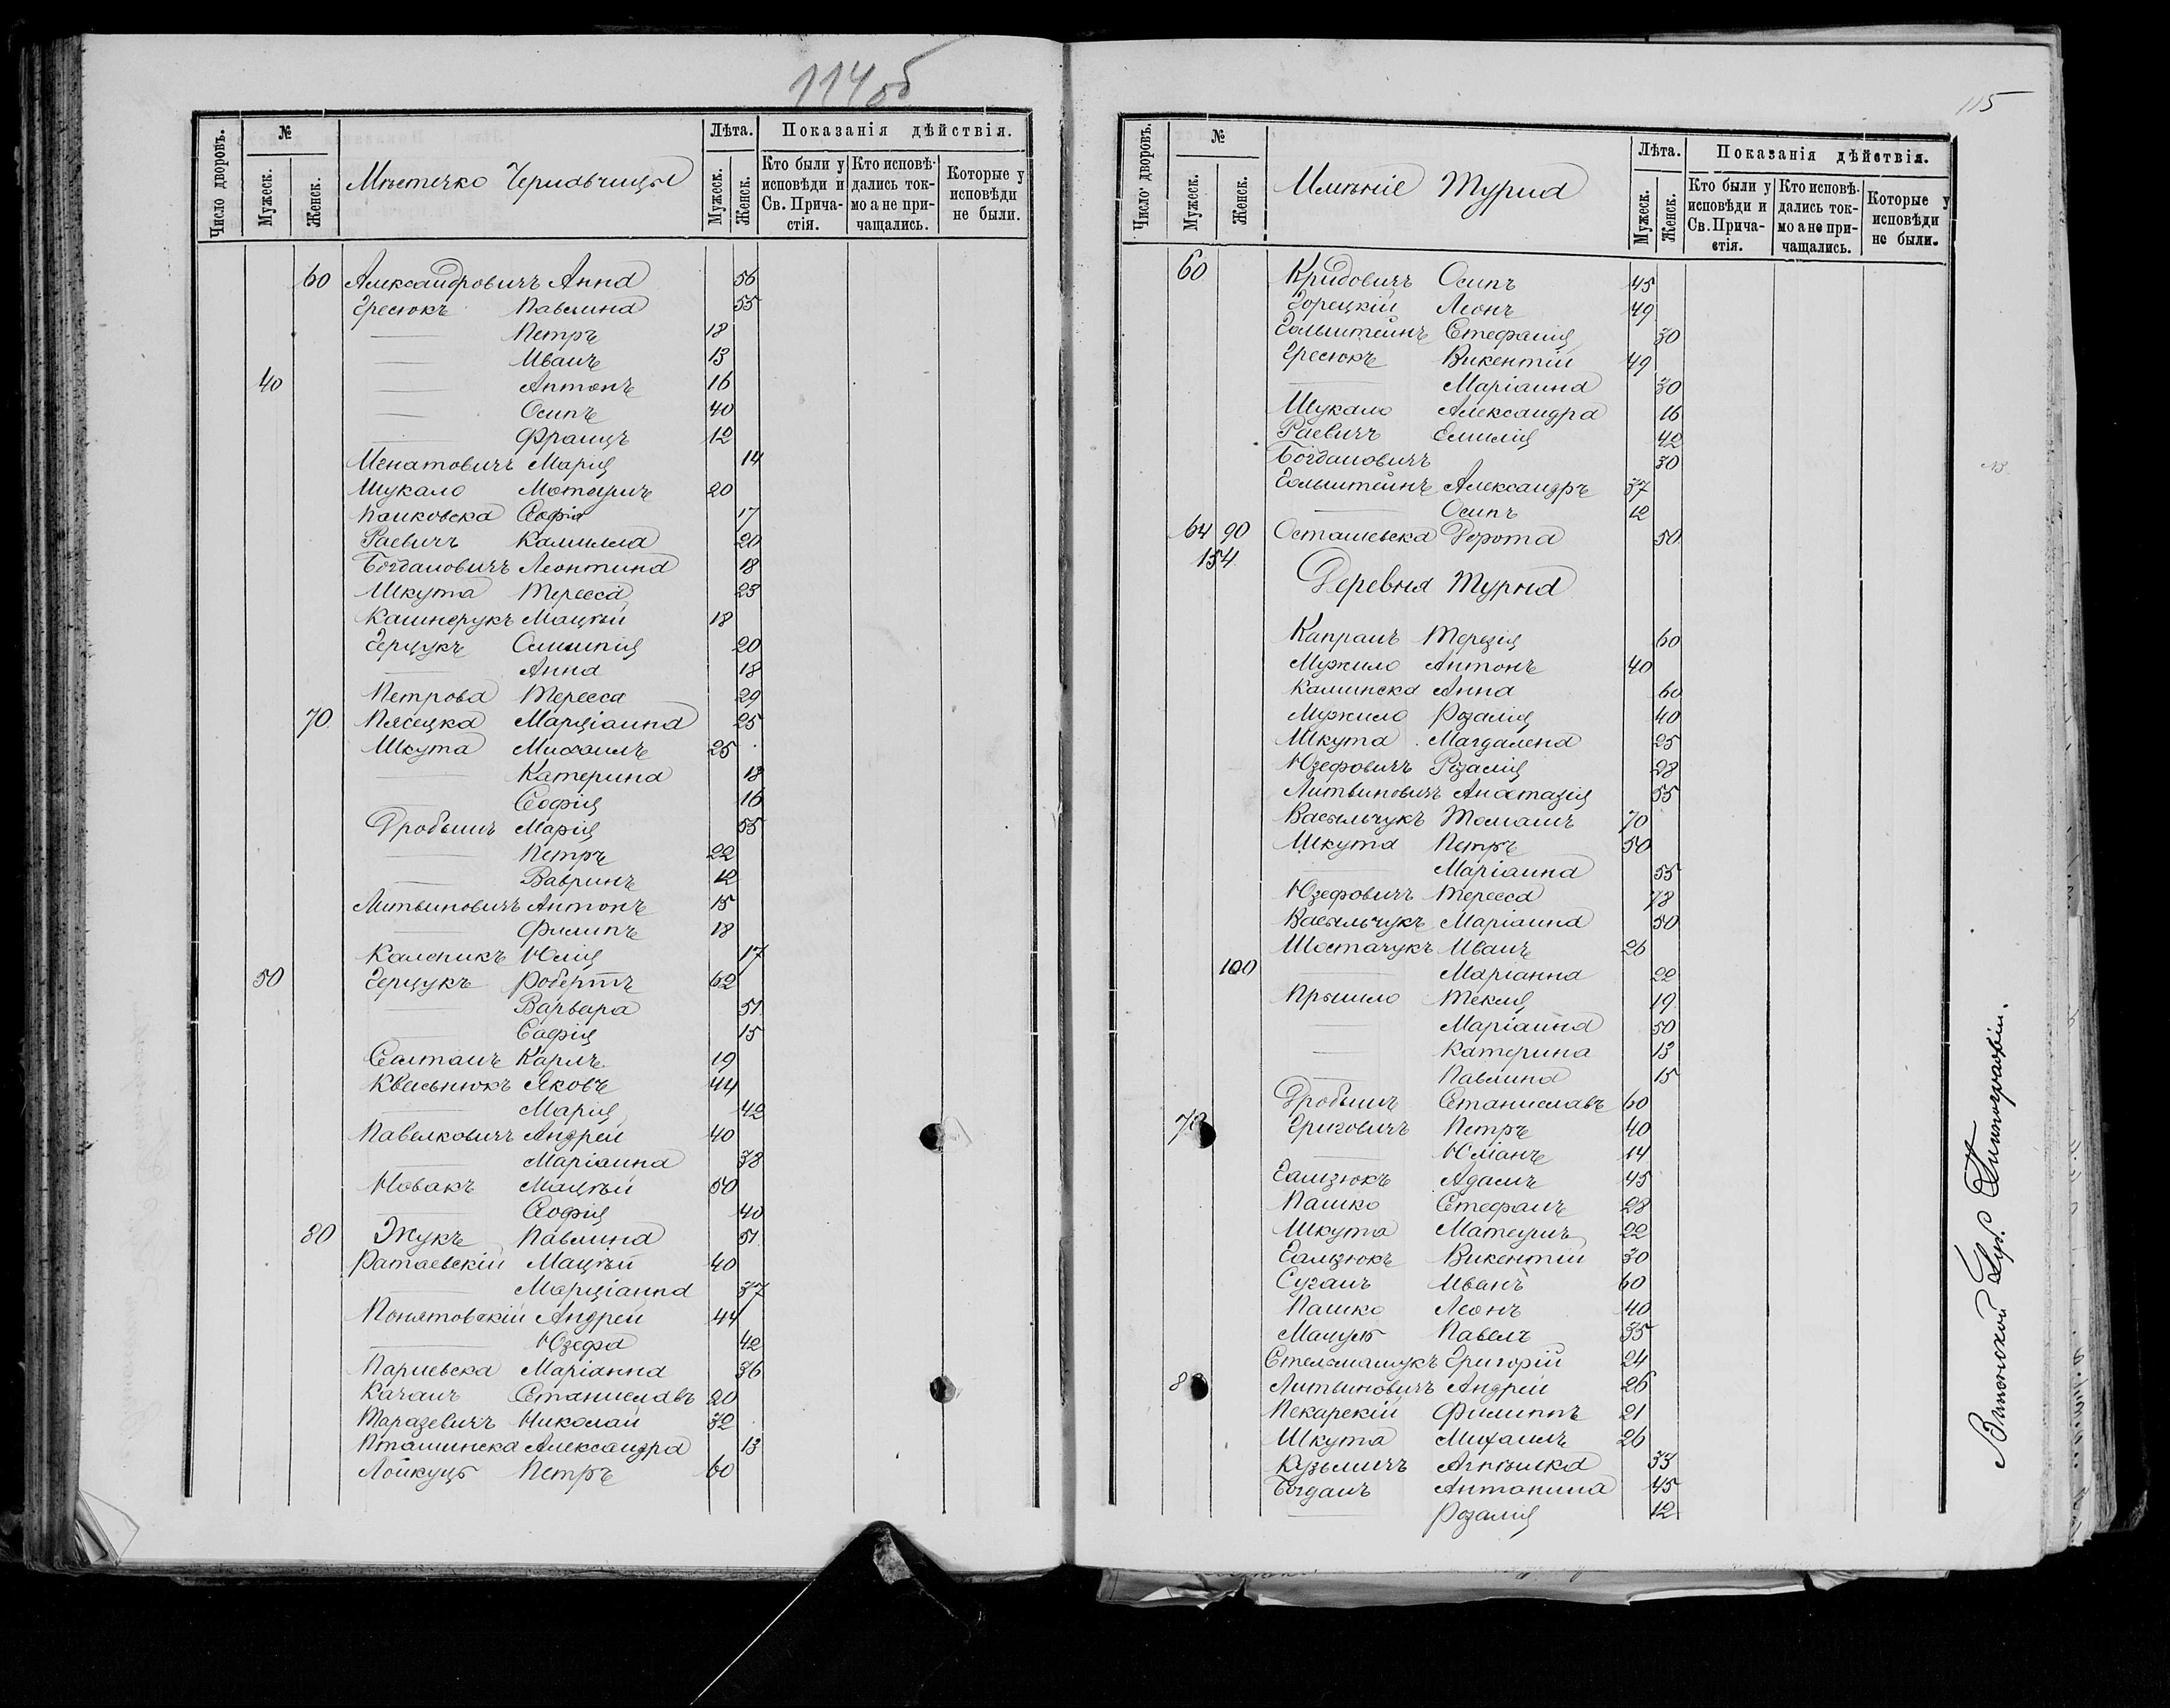 114 об
Число дворовъ.
№
Мужеск.
Женск.
Мѣстечко Чернавчицы
Лѣта.
Мужеск.
Женск.
Показанія дѣйствія.
Кто были у исповѣди и Св. Причастія.
Кто исповѣдались токмо а не причащались.
Которые у исповѣди не были.
60 Александровичъ Анна 56
Гресюкъ Павлина 55
— Петръ 18
— Иванъ 13
40 — Антонъ 16
— Осипъ 40
— Францъ 12
Игнатовичъ Марія 14
Шукало Мотеушъ 20
Панковска Софія 17
Раевичъ Камилла 20
Богдановичъ Леонтина 18
Шкута Тересса 23
Кашнерукъ Мацѣй 18
Герцукъ Олимпія 20
— Анна 18
Петрова Тересса 29
70 Пясецка Марціанна 25
Шкута Михаилъ 25
— Катерина 18
— Софія 16
Дробышъ Марія 55
— Петръ 22
— Вавринъ 12
Литвиновичъ Антонъ 15
— Филипъ 18
Каленикъ Юлія 17
50 Герцукъ Робертъ 62
— Варвара 51
— Софія 15
Салтанъ Карлъ 19
Квасьнюкъ Яковъ 44
— Марія 42
Павелковичъ Андрей 40
— Маріанна 38
Новакъ Мацѣй 50
— Софія 40
80 Жукъ Павлина 51
Ратаевскій Мацѣй 40
— Марціанна 37
Понятовскій Андрей 44
— Юзефа 42
Париевска Маріанна 36
Качанъ Станиславъ 20
Таразевичъ Николай 32
Пташинска Александра 13
Лойкуцъ Петръ 60
115
Число дворовъ.
№
Мужеск.
Женск.
Имѣніе Турна
Лѣта.
Мужеск.
Женск.
Показанія дѣйствія.
Кто были у исповѣди и Св. Причастія.
Кто исповѣдались токмо а не причащались.
Которые у исповѣди не были.
60 Кридовичъ Осипъ 45
Горецкій Леонъ 49
Гольштейнъ Стефанія 30
Гресюкъ Викентій 49
— Маріанна 30
Шукало Александра 16
Раевичъ Емилія 42
Богдановичъ 30
Гольштейнъ Александръ 37
— Осипъ 12
64 90 Осташевска Дорота 50
154
Деревня Турна
Капранъ Терезія 60
Мужило Антонъ 40
Каминска Анна 60
Мужило Розалія 40
Шкута Магдалена 25
Юзефовичъ Розалія 28
Литвиновичъ Анастазія 55
Васыльчукъ Томашъ 70
Шкута Петръ 50
— Маріанна 55
Юзефовичъ Тересса 78
Васыльчукъ Маріанна 50
Шостачукъ Иванъ 26
100 — Маріанна 22
Прышло Текля 19
— Маріанна 50
— Катерина 13
— Павлина 15
Дробышъ Станиславъ 60
70 Григовичъ Петръ 40
— Юліанъ 14
Гализюкъ Адамъ 45
Пашко Стефанъ 28
Шкута Матеушъ 22
Гализюкъ Викентій 30
Суганъ Иванъ 60
Пашко Леонъ 40
Мацумъ Павелъ 35
Стельмашукъ Григорій 24
Литвиновичъ Андрей 26
Пекарскій Филиппъ 21
Шкута Михаилъ 26
Кузьмичъ Агнѣшка 33
Богданъ Антонина 45
— Розалія 12
Виленской Губ. Типографіи.